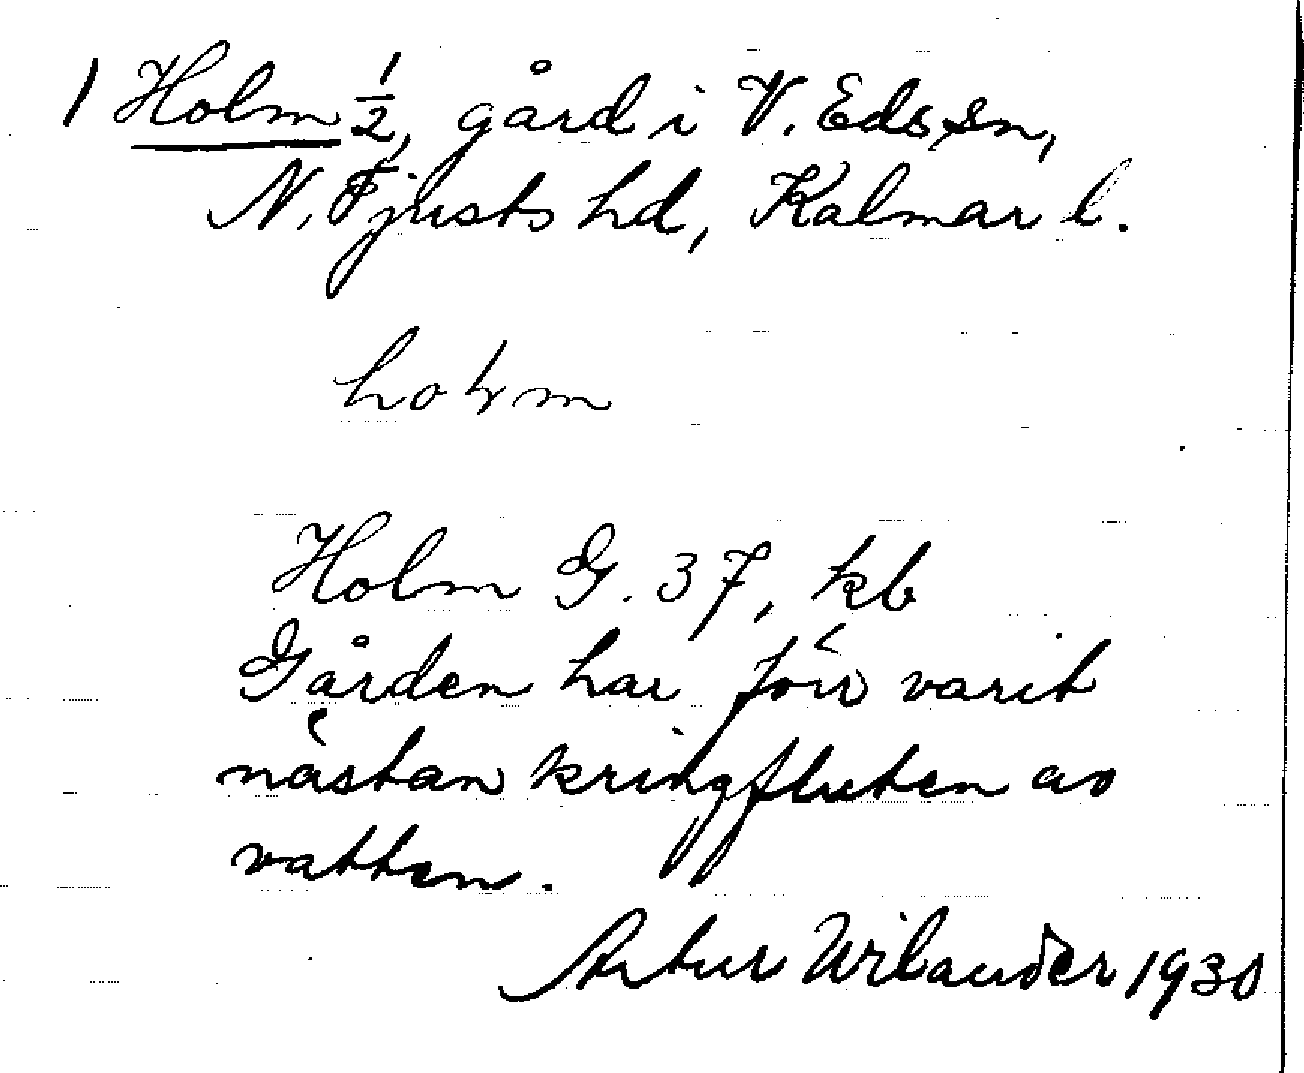 1 Holm 1/2, gård i V. Eds sn,
N. Tjusts hd, Kalmar l.
holm
Holm G. 37, kb
Gården har förr varit
nästan kringfluten av
vatten.
Artur Wilander 1930